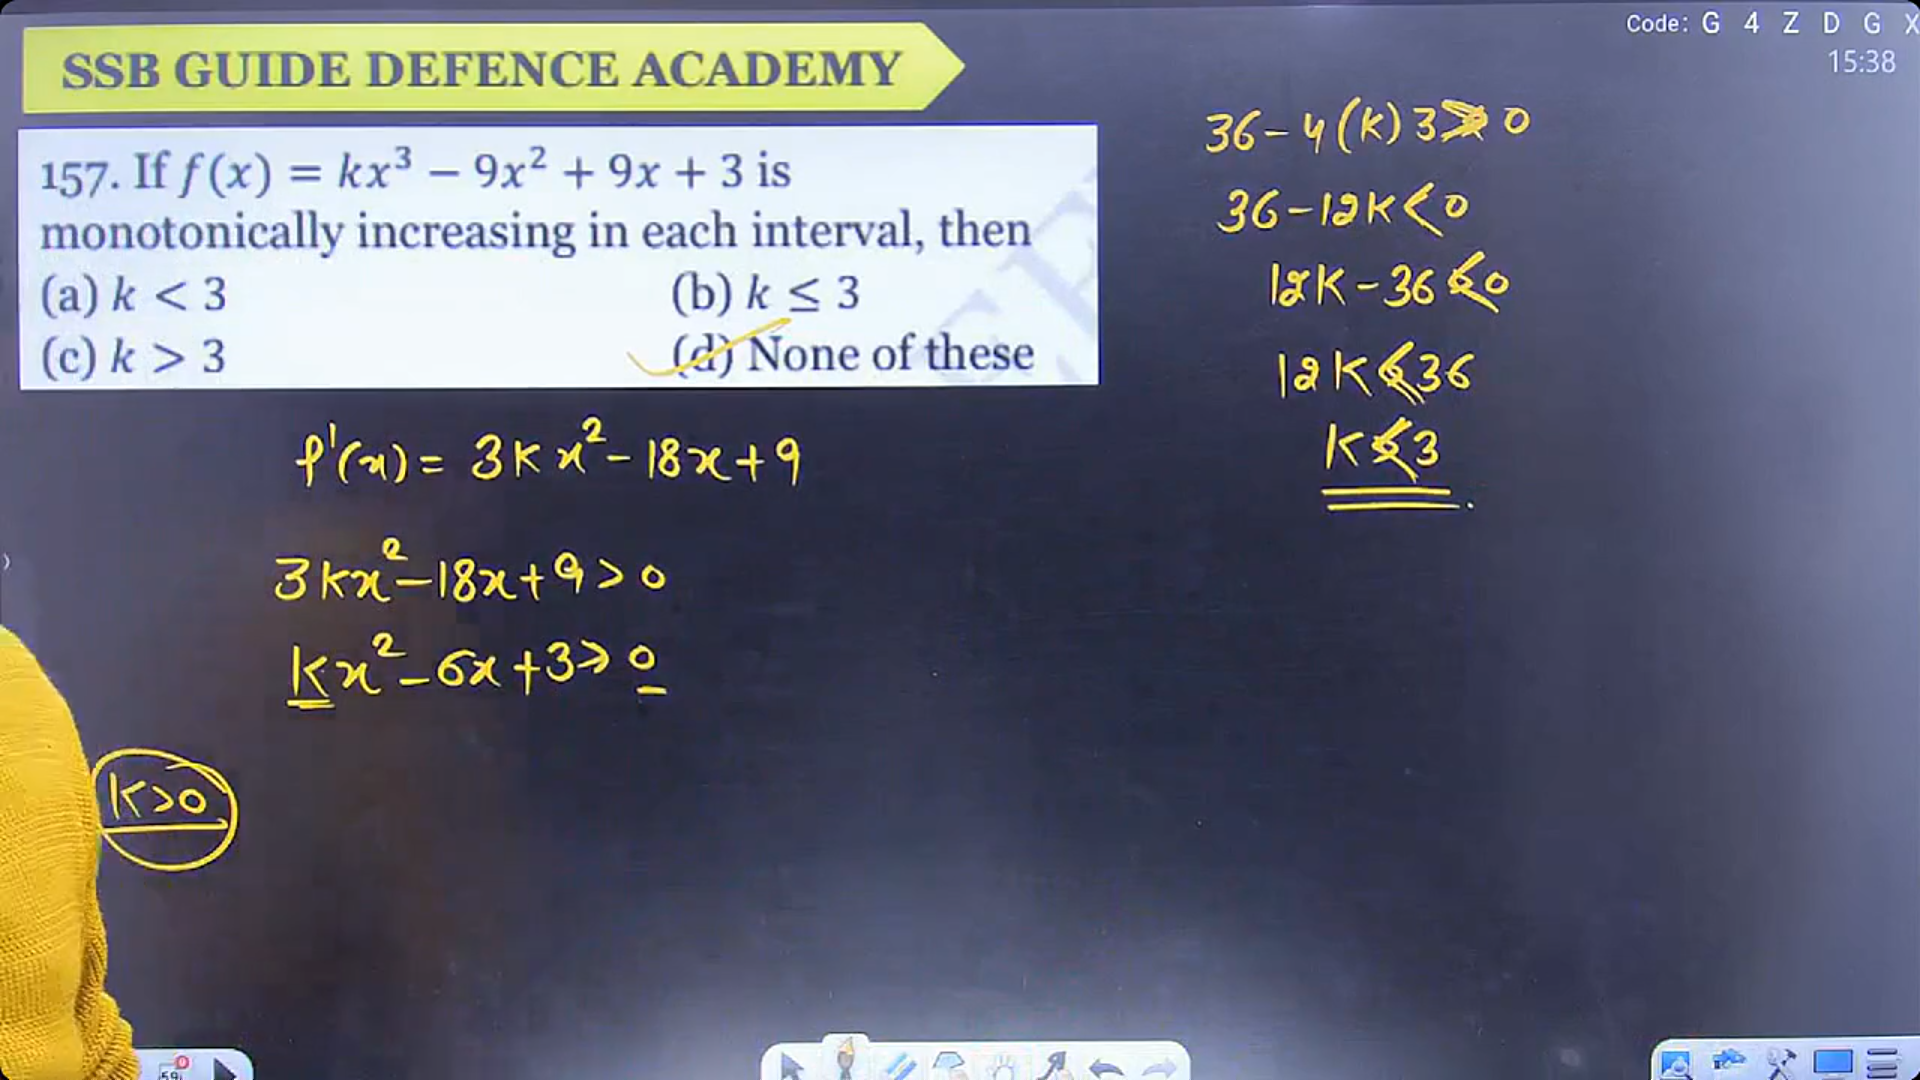 Code: G 4 Z D G X
15:38
SSB GUIDE DEFENCE ACADEMY
157. If f(x) = kx³ − 9x² + 9x + 3 is
monotonically increasing in each interval, then
(a) k < 3 (b) k ≤ 3
(c) k > 3 (d) None of these
f'(x) = 3kx² − 18x + 9
3kx² − 18x + 9 > 0
kx² − 6x + 3 > 0
k>0
36 − 4(k) 3 0
36 − 12k < 0
12k − 36 < 0
12k < 36
k < 3